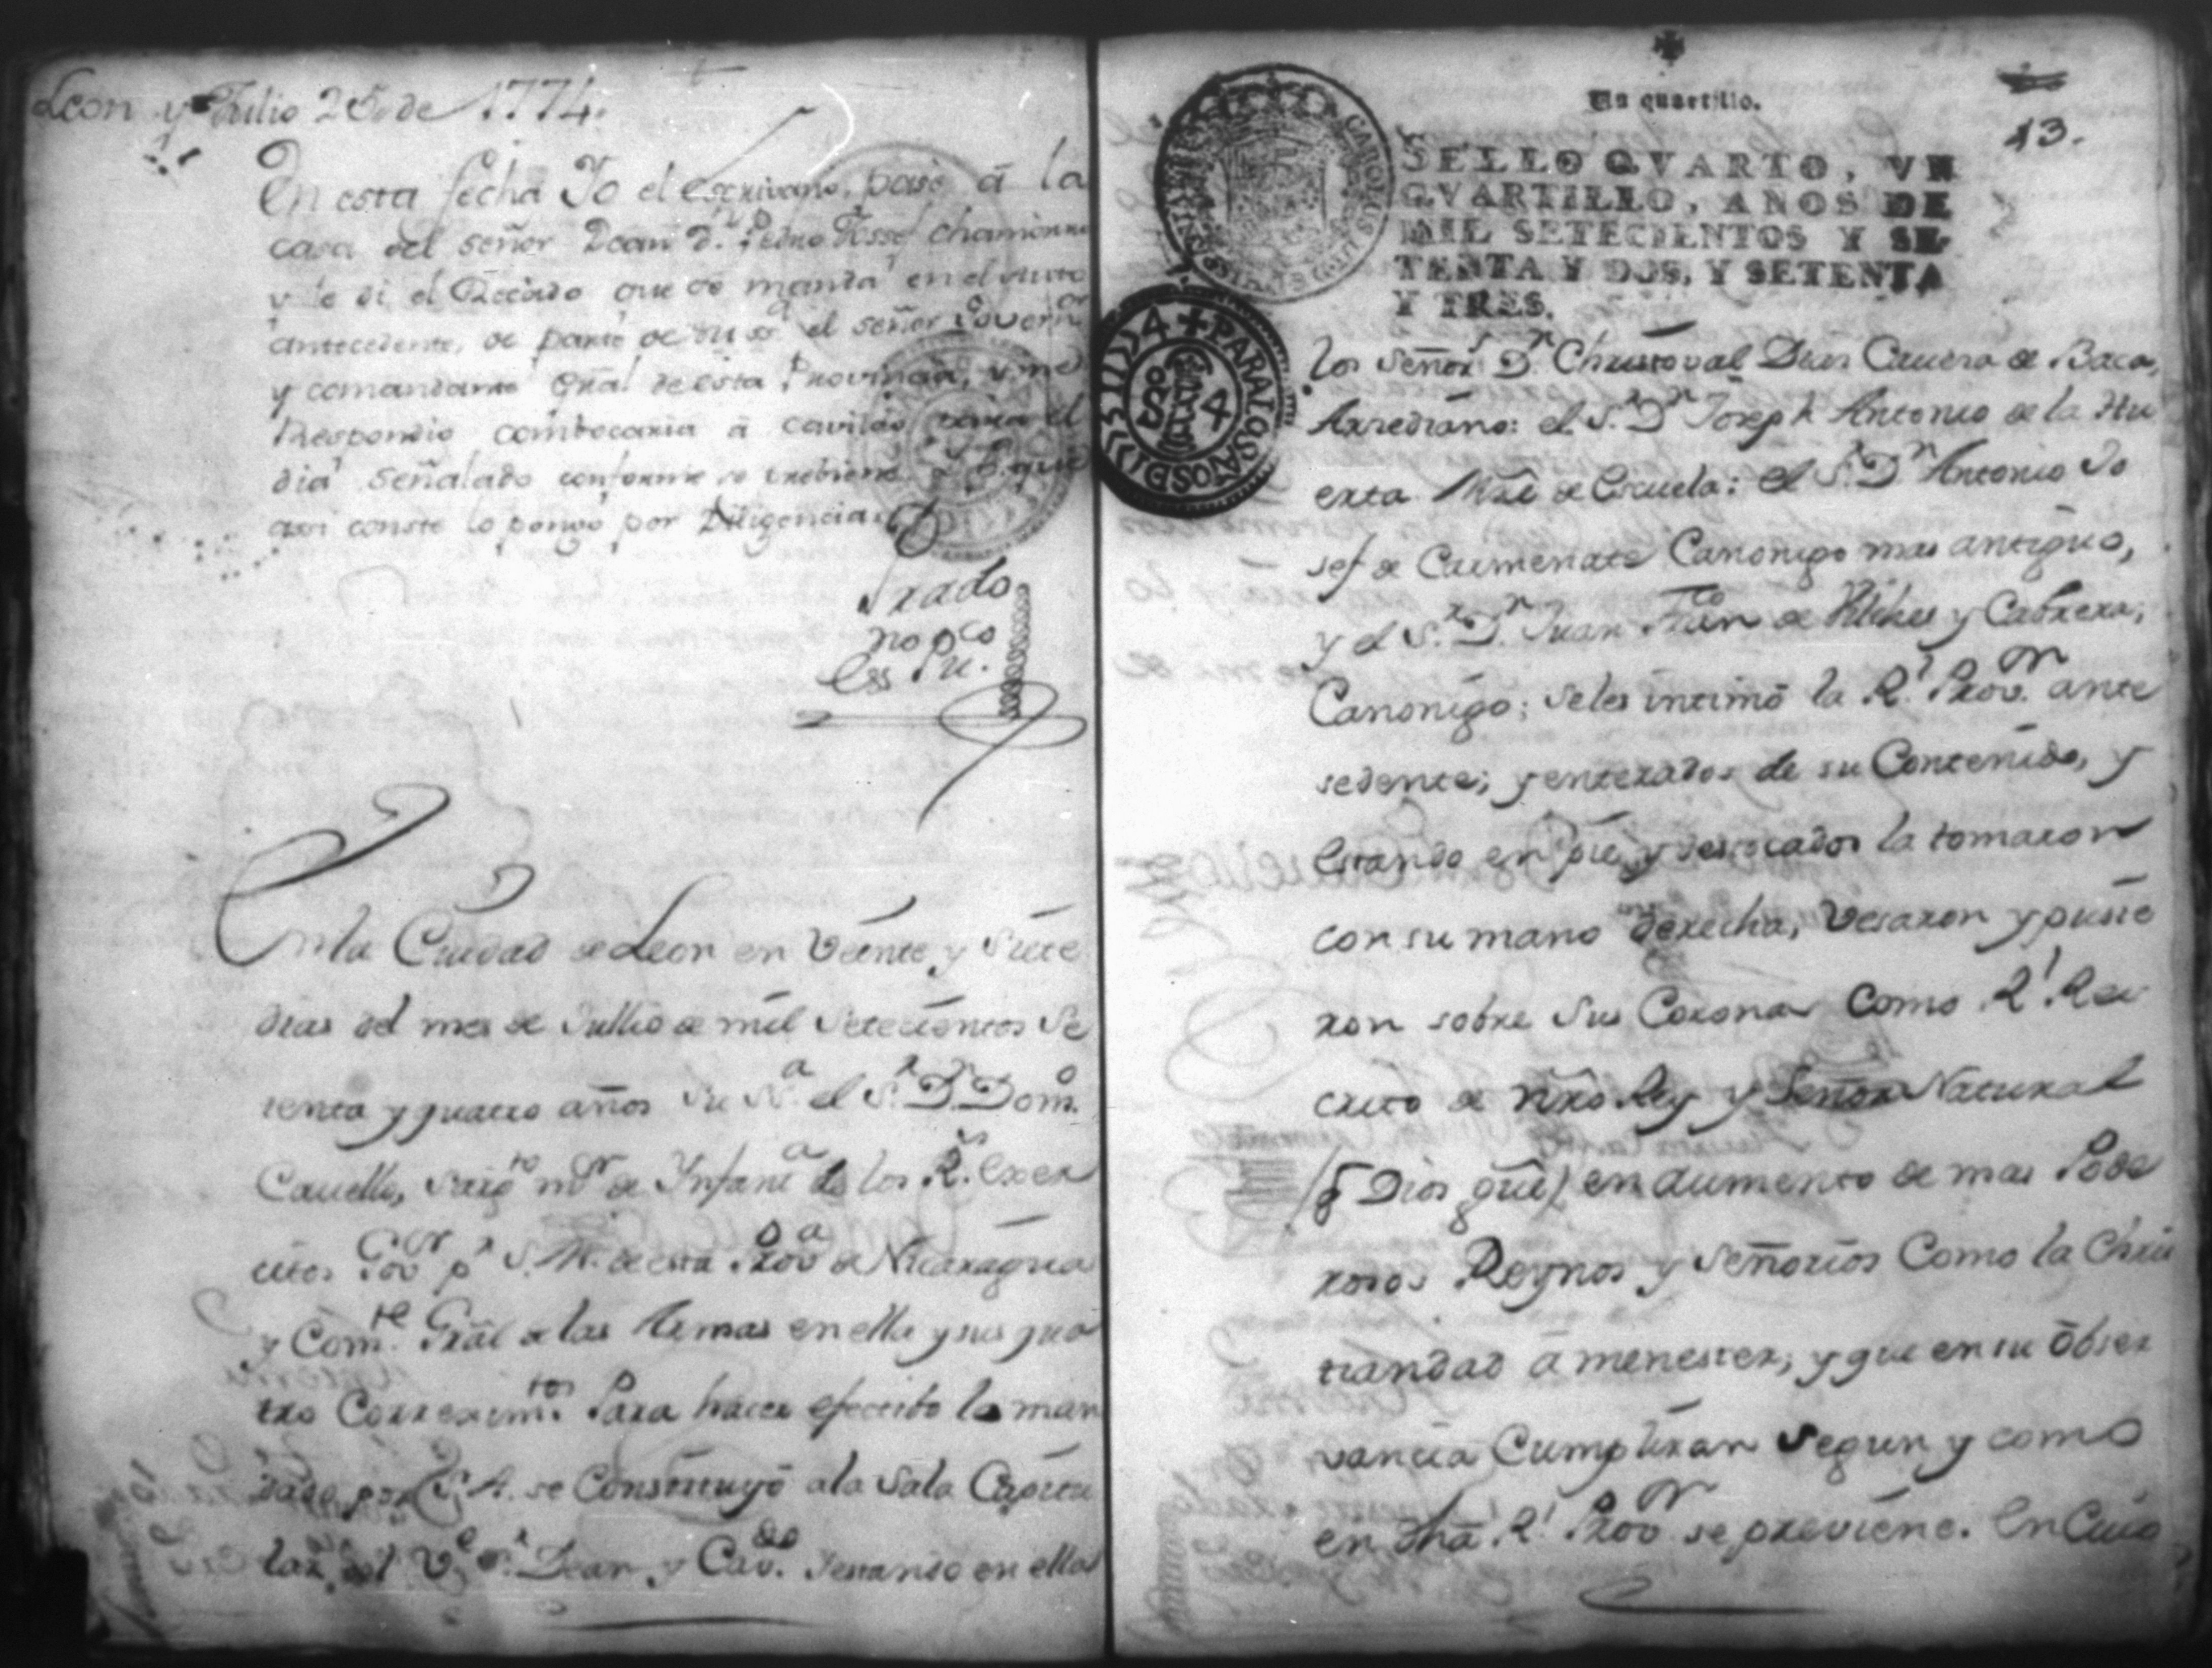 Leon y Julio 25. de 1774.
En esta fecha Yo el Escrivano, pasé á la
casa del señor Dean D.n Pedro Jossef chamorro
y le di el Recado que se manda en el Auto
antecedente, de parte de su s.a el señor Govern.or
y comandante Gral de esta Provincia, y me
Respondio combocaria á cavildo para el
dia señalado conforme se
assi conste lo pongo por Diligencia
Prado
no pco
Ess Pu.
En la Ciudad de Leon en Veinte y Siete
dias del mes de Jullio de mil Setecientos Se
tenta y quatro años Su S.a el S.r D.n Dom.o
Cavello, Sarg.to m.or de Infant.a de los R.s Exer
citos Gov.or p.r S. M. de esta Prov.a de Nicaragua
y Com.te Gral de las Armas en ella y sus qua
tro Correxim.tos Para hacer efectibo lo man
dado por S. A. se Constituyó a la Sala Capitu
lar del V.e S.r Dean y Cav.do y estando en ella
Un quartillo.
13.
SELLO QVARTO, VN
QVARTILLO, AÑOS DE
MIL SETECIENTOS Y SE-
TENTA Y DOS, Y SETENTA
Y TRES.
CAROLUS
PARA LOS AÑOS D 1774
los Señor.s D.n Christoval Dias Cavesa de Baca,
Arzediano: el S.r D.n Joseph Antonio de la Hu
erta Mrê de Escuela: el S.r D.n Antonio Jo
sef de Carmenate Canonigo mas antiguo,
y el S.r D.n Juan Fran.co de Vilches y Cabrera,
Canonigo; se les intimó la R.l Prov.on ante
sedente; y enterados de su Contenido, y
Estando en pie, y destocados la tomaron
con su mano derecha, Vesaron y pusie
ron sobre Sus Coronas Como R.l Res
cripto de nrô Rey y Señor Natural
(q̃ Dios gûe) en aumento de mas Pode
rosos Reynos y Señorios Como la Chris
tiandad á menester; y que en su Óbser
vancia Cumpliran Segun y como
en dhâ. R.l Prov.on se previene. En Cuio